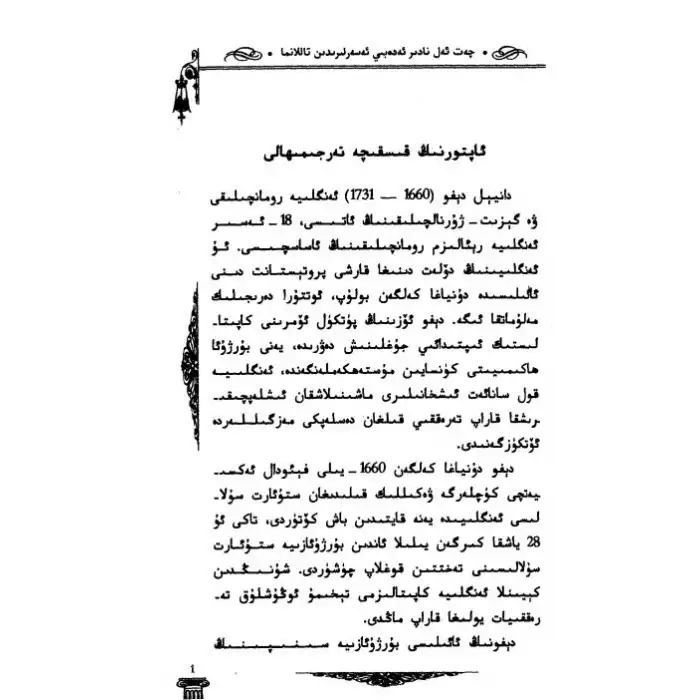 • چەت ئەل نادىر ئەدەبىي ئەسەرلىرىدىن تاللانما •
ئاپتورنىڭ قىسقىچە تەرجىمىھالى
دانىيېل دېفو (1660 — 1731) ئەنگلىيە رومانچىلىقى
ۋە گېزىت ـ ژۇرنالچىلىقىنىڭ ئاتىسى، 18 ـ ئەسىر
ئەنگلىيە رېئالىزم رومانچىلىقىنىڭ ئاساسچىسى. ئۇ
ئەنگلىيىنىڭ دۆلەت دىنىغا قارشى پروتېستانت دىنى
ئائىلىسىدە دۇنياغا كەلگەن بولۇپ، ئوتتۇرا دەرىجىلىك
مەلۇماتقا ئىگە. دېفو ئۆزىنىڭ پۈتكۈل ئۆمرىنى كاپىتا-
لىستىك ئىپتىدائىي جۇغلىنىش دەۋرىدە، يەنى بۇرژۇئا
ھاكىمىيىتى كۈنسايىن مۇستەھكەملەنگەندە، ئەنگلىيە
قول سانائەت ئىشخانىلىرى ماشىنىلاشقان ئىشلەپچىقى-
رىشقا قاراپ تەرەققىي قىلغان دەسلەپكى مەزگىللەردە
ئۆتكۈزگەنىدى.
دېفو دۇنياغا كەلگەن 1660 ـ يىلى فېئودال ئەكسى-
يەتچى كۈچلەرگە ۋەكىللىك قىلىدىغان ستۇئارت سۇلا-
لىسى ئەنگلىيىدە يەنە قايتىدىن باش كۆتۈردى، تاكى ئۇ
28 ياشقا كىرگەن يىلىلا ئاندىن بۇرژۇئازىيە ستۇئارت
سۇلالىسىنى تەختتىن قوغلاپ چۈشۈردى. شۇنىڭدىن
كېيىنلا ئەنگلىيە كاپىتالىزمى تېخىمۇ ئوڭۇشلۇق تە-
رەققىيات يولىغا قاراپ ماڭدى.
دېفونىڭ ئائىلىسى بۇرژۇئازىيە سىنىپىنىڭ
1